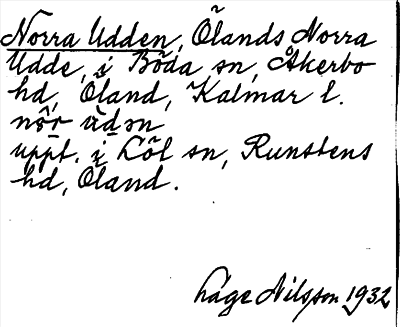 Norra Udden, Ölands Norra
Udde, i Böda sn, Åkerbo
hd, Öland, Kalmar l.
uppt. i Löt sn, Runstens
hd, Öland.
Låge Nilsson 1932